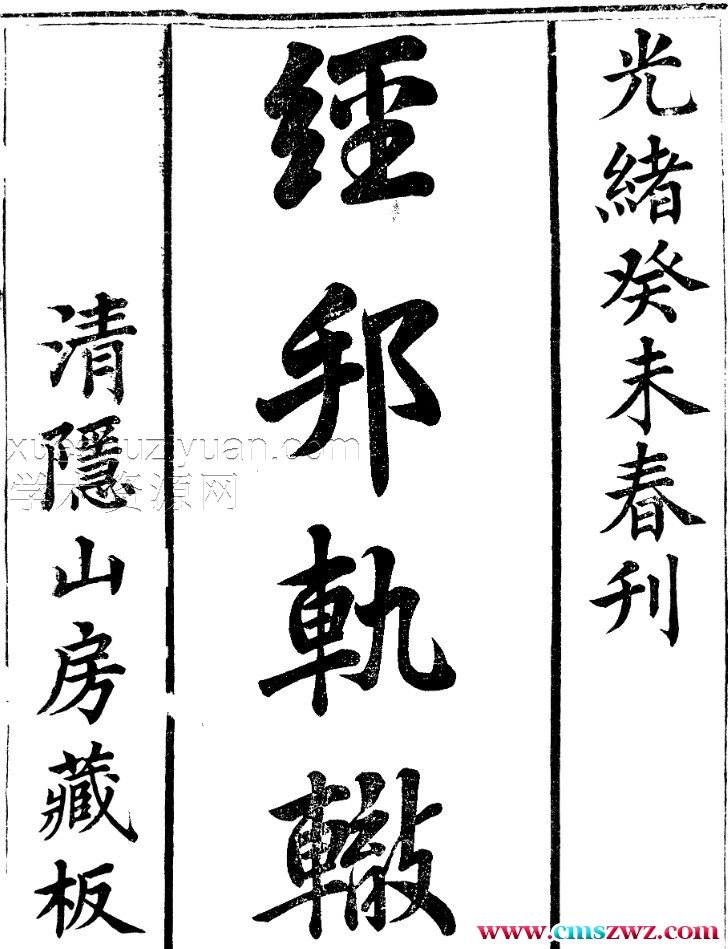 光緒癸未春刊
經邦軌轍
清隱山房藏板
xueshuziyuan.com
学术资源网
www.cmszwz.com